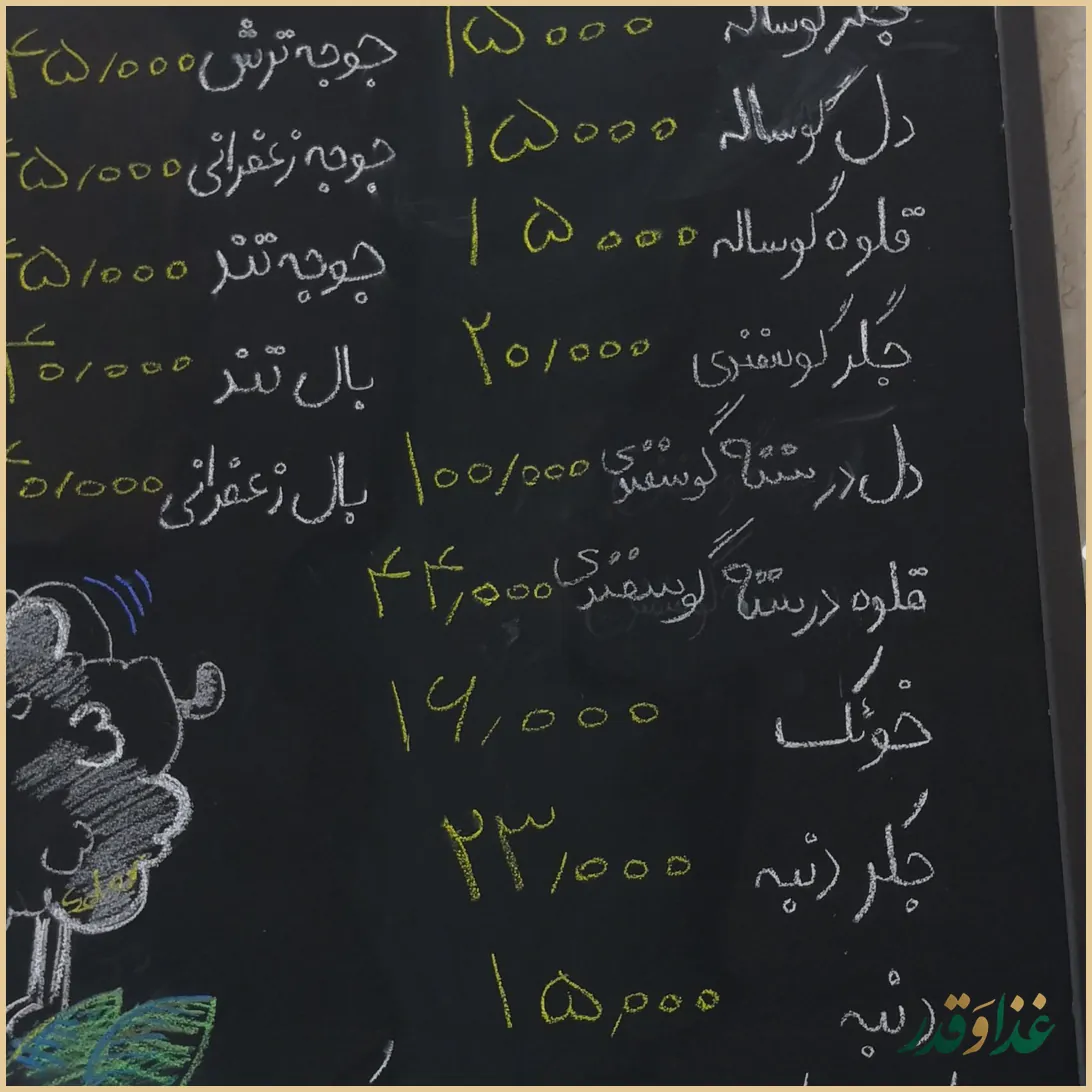 جگر گوساله ۱۵۰۰۰
دل گوساله ۱۵۰۰۰
قلوه گوساله ۱۵۰۰۰
جگر گوسفندی ۲۰/۰۰۰
دل درسته گوسفندی ۱۰۰/۰۰۰
قلوه درسته گوسفندی ۴۴,۰۰۰
خوئک ۱۶,۰۰۰
جگر دنبه ۲۳/۰۰۰
دنبه ۱۵,۰۰۰
جوجه ترش ۴۵/۰۰۰
جوجه زعفرانی ۵/۰۰۰
جوجه تند ۵/۰۰۰
بال تند ۴۰/۰۰۰
بال زعفرانی ۰/۰۰۰
غذا و قدر